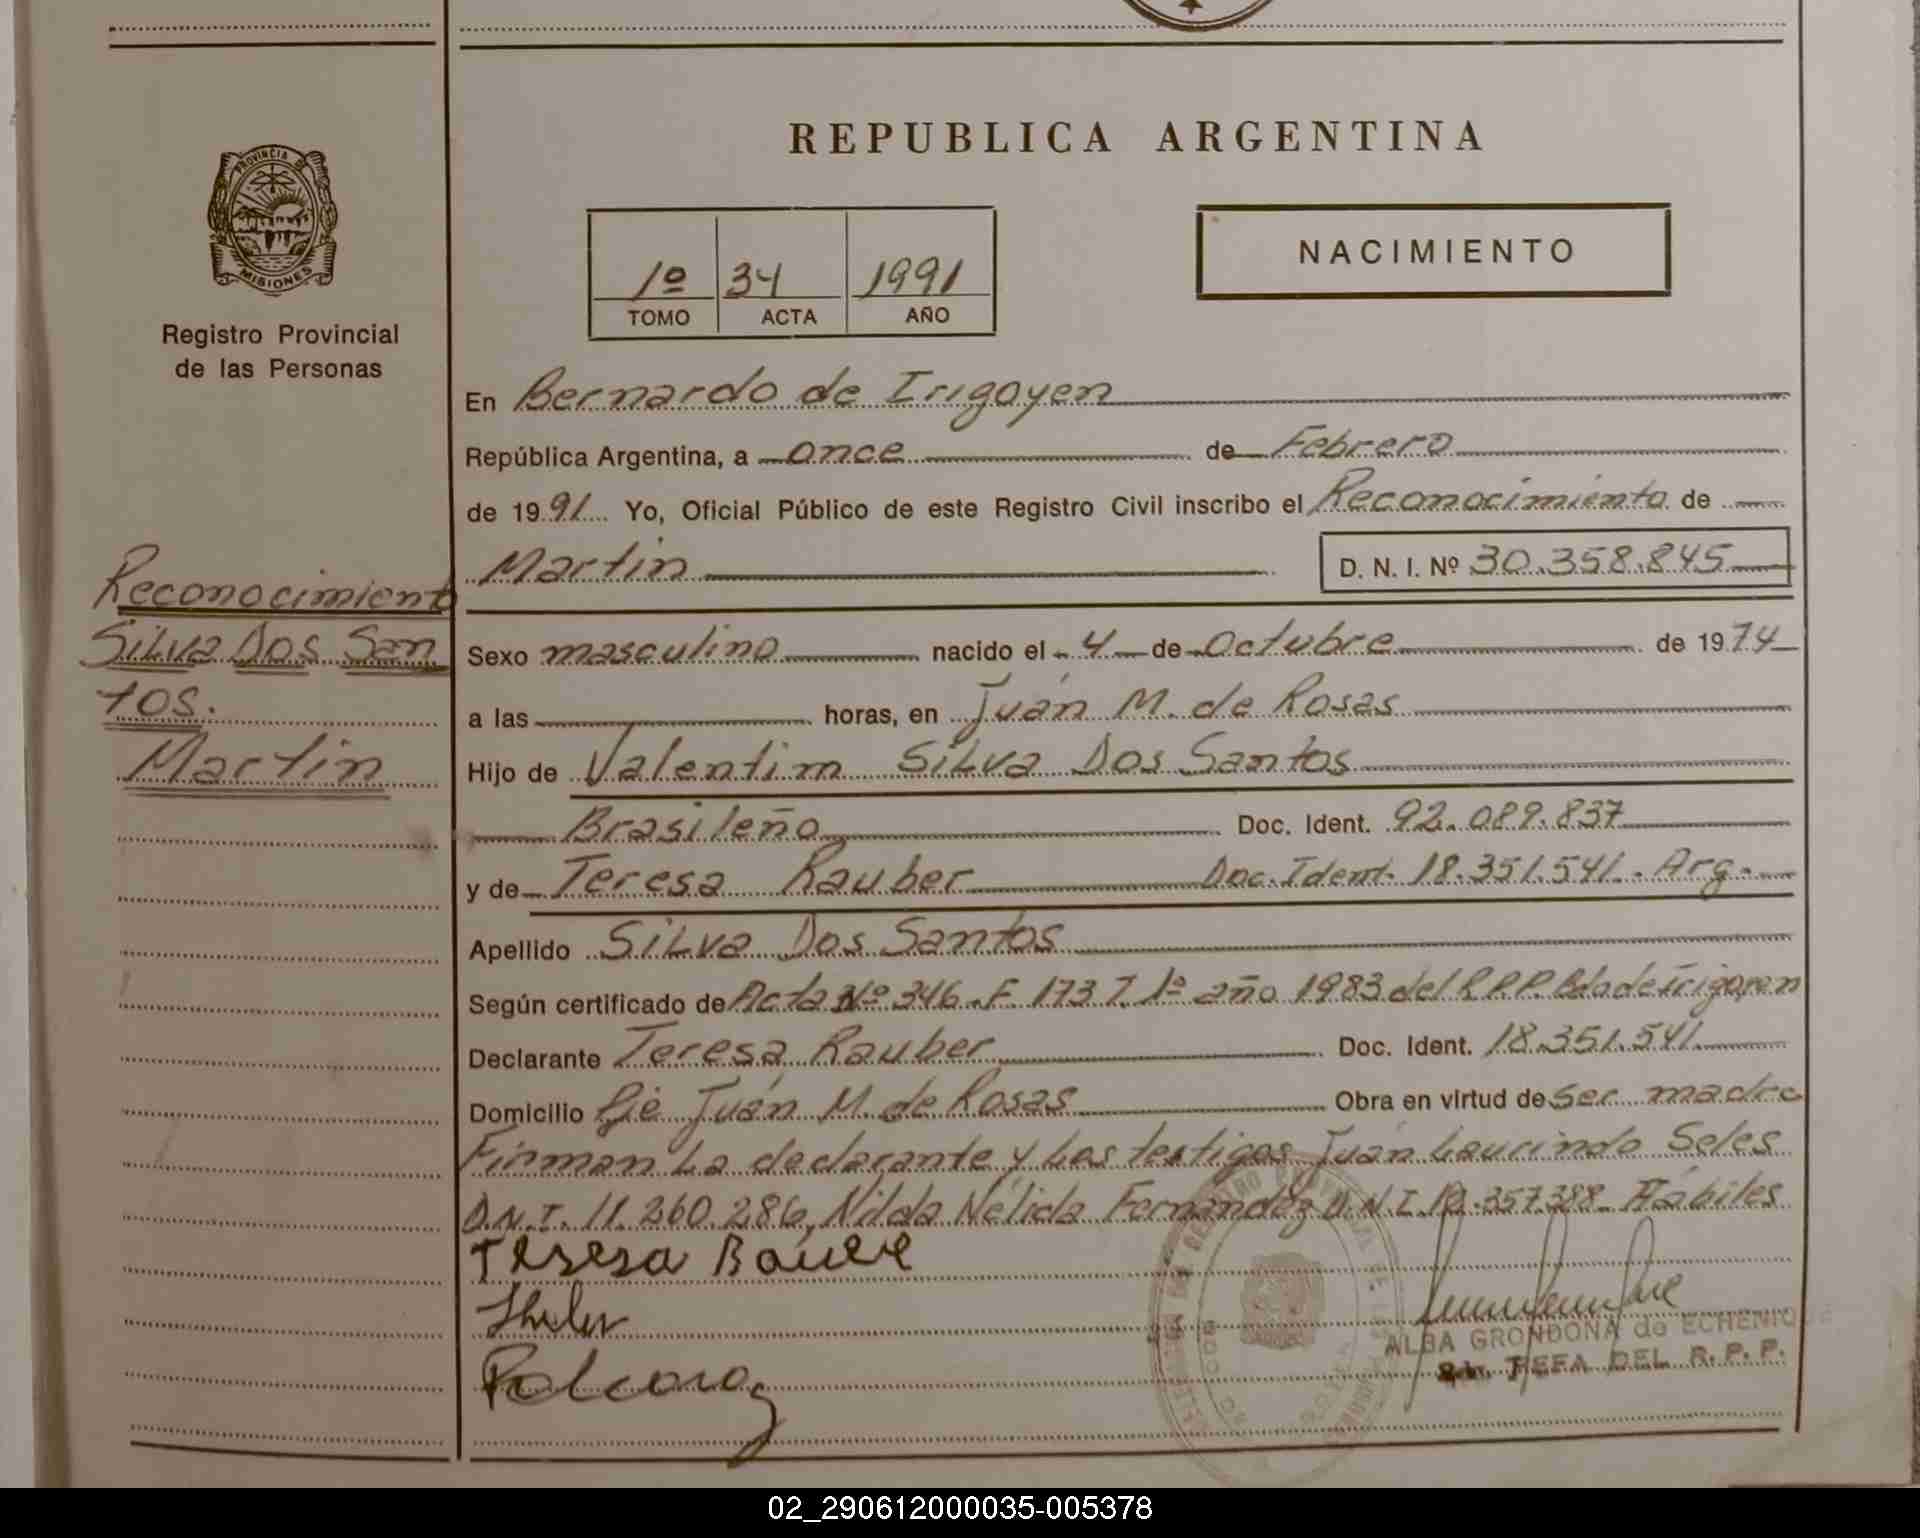 REPUBLICA ARGENTINA
PROVINCIA DE
MISIONES
Registro Provincial
de las Personas
1º 34 1991
TOMO ACTA AÑO
NACIMIENTO
En Bernardo de Irigoyen
República Argentina, a once de Febrero
de 1991 Yo, Oficial Público de este Registro Civil inscribo el Reconocimiento de
Martin D. N. I. Nº 30.358.845
Reconocimiento
Silva Dos San
tos.
Martin
Sexo masculino nacido el 4 de Octubre de 1974
a las horas, en Juán M. de Rosas
Hijo de Valentim Silva Dos Santos
Brasileño Doc. Ident. 92.089.837
y de Teresa Rauber Doc. Ident. 18.351.541. Arg.
Apellido Silva Dos Santos
Según certificado de Acta Nº 346. F 173 T. 1º año 1983 del R.P.P. Bdo de Irigoyen
Declarante Teresa Rauber Doc. Ident. 18.351.541
Domicilio Pje Juán M. de Rosas Obra en virtud de ser madre
Firman La declarante y Los testigos Juán Laurindo Seles
D.N.I. 11.260.286, Nilda Nélida Fernández D.N.I. .357.388 Hábiles
Teresa
ALBA GRONDONA de ECHENIQUE
JEFA DEL R. P. P.
02_290612000035-005378